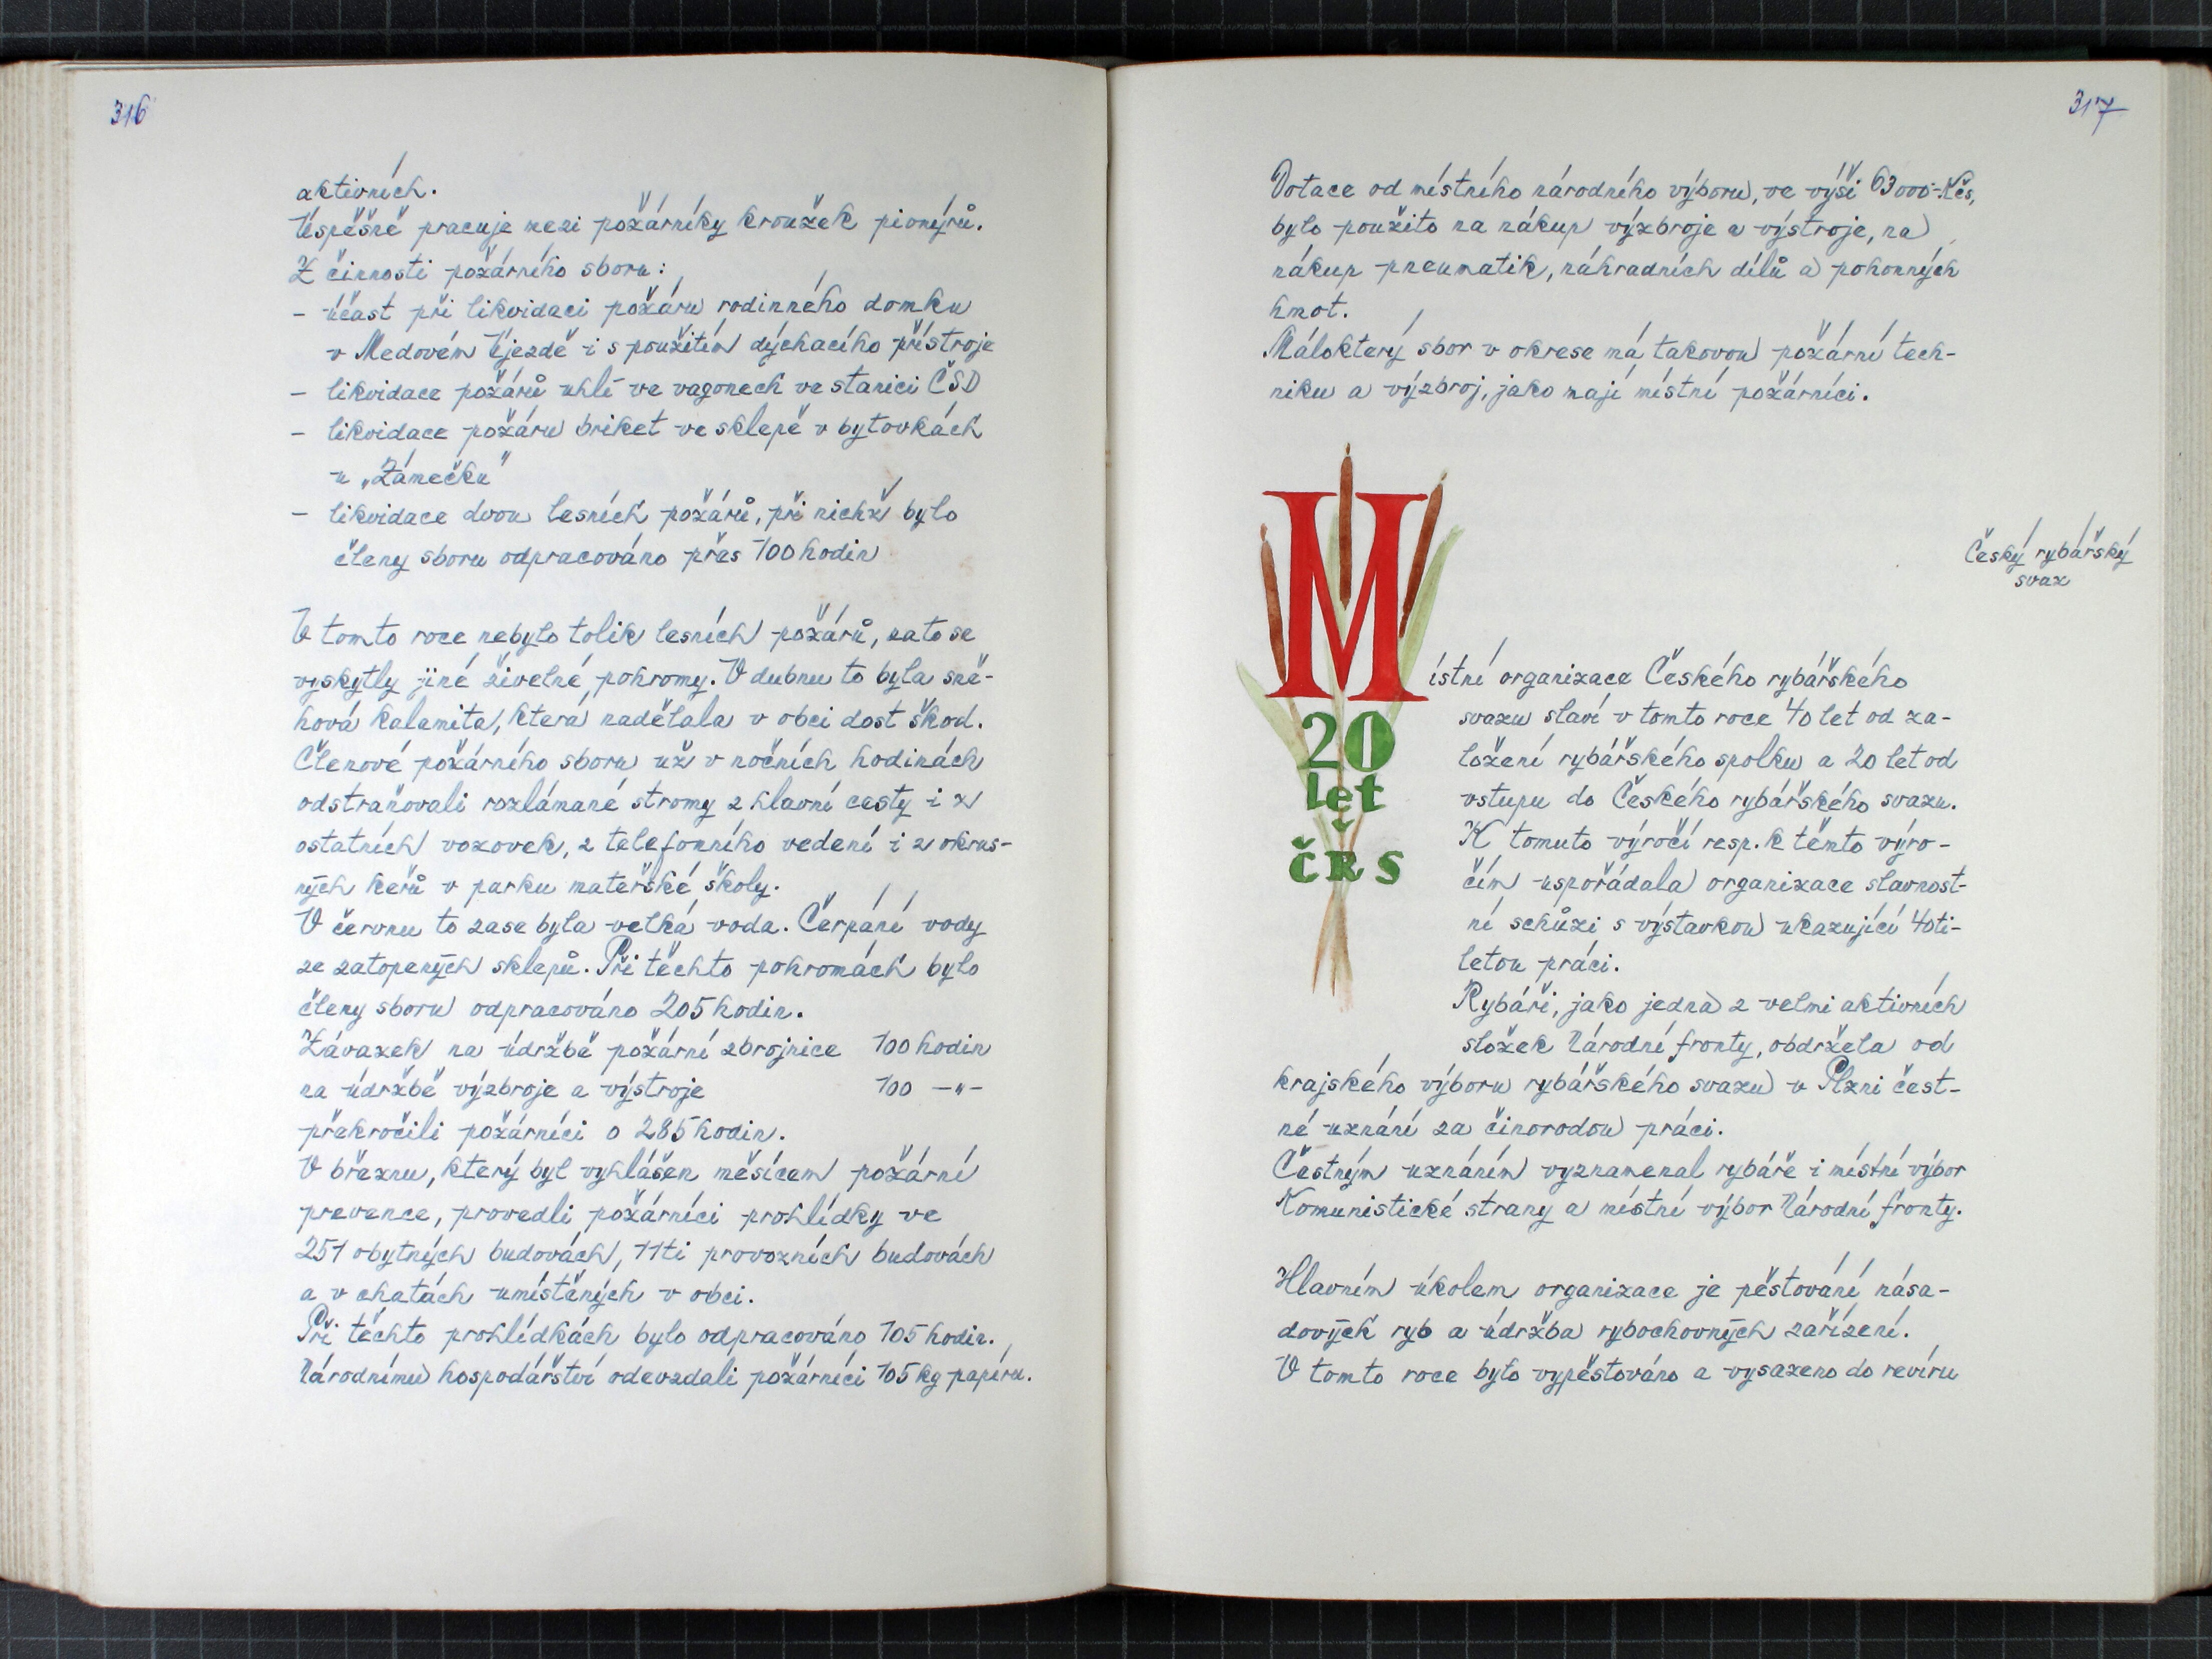 316
aktivních.
Úspěšně pracuje mezi požárníky kroužek pionýrů.
Z činnosti požárního sboru:
- účast při likvidaci požáru rodinného domku
v Medovém Újezdě i s použitím dýchacího přístroje
- likvidace požárů uhlí ve vagonech ve stanici ČSD
- likvidace požáru briket ve sklepě v bytovkách
u „Zámečku"
- likvidace dvou lesních požárů, při nichž bylo
členy sboru odpracováno přes 100 hodin
V tomto roce nebylo tolik lesních požárů, zato se
vyskytly jiné živelné pohromy. V dubnu to byla sně-
hová kalamita, která nadělala v obci dost škod.
Členové požárního sboru už v nočních hodinách
odstraňovali rozlámané stromy z hlavní cesty i z
ostatních vozovek, z telefonního vedení i z okras-
ných keřů v parku mateřské školy.
V červnu to zase byla velká voda. Čerpání vody
ze zatopených sklepů. Při těchto pohromách bylo
členy sboru odpracováno 205 hodin.
Závazek na údržbě požární zbrojnice 100 hodin
na údržbě výzbroje a výstroje 100 -"-
překročili požárníci o 285 hodin.
V březnu, který byl vyhlášen měsícem požární
prevence, provedli požárníci prohlídky ve
251 obytných budovách, 11ti provozních budovách
a v chatách umístěných v obci.
Při těchto prohlídkách bylo odpracováno 105 hodin.
Národnímu hospodářství odevzdali požárníci 105 kg papíru.
317
Dotace od místního národního výboru, ve výši 63000.-Kčs,
bylo použito na nákup výzbroje a výstroje, na
nákup pneumatik, náhradních dílů a pohonných
hmot.
Málokterý sbor v okrese má takovou požární tech-
niku a výzbroj, jako mají místní požárníci.
Český rybářský
svaz
Místní organizace Českého rybářského
svazu slaví v tomto roce 40 let od za-
ložení rybářského spolku a 20 let od
vstupu do Českého rybářského svazu.
K tomuto výročí resp. k těmto výro-
čím uspořádala organizace slavnost-
ní schůzi s výstavkou ukazující 40ti-
letou práci.
20
let
ČRS
Rybáři, jako jedna z velmi aktivních
složek Národní fronty, obdržela od
krajského výboru rybářského svazu v Plzni čest-
né uznání za činorodou práci.
Čestným uznáním vyznamenal rybáře i místní výbor
Komunistické strany a místní výbor Národní fronty.
Hlavním úkolem organizace je pěstování nása-
dových ryb a údržba rybochovných zařízení.
V tomto roce bylo vypěstováno a vysazeno do revíru